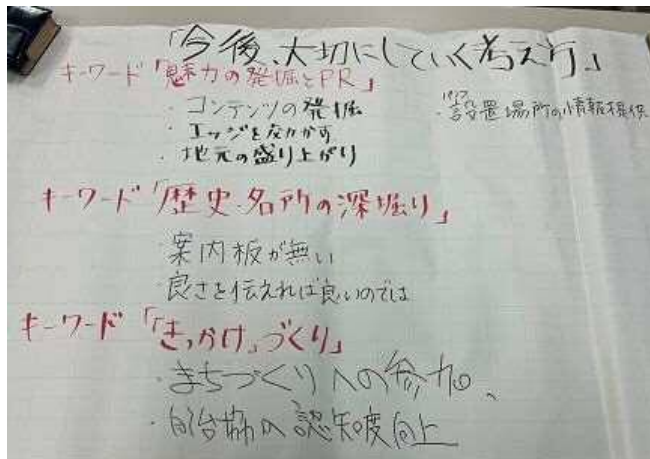 「今後、大切にしていく考え方」
キーワード「魅力の発掘とPR」
・コンテンツの発掘
・エッジを
・地元の盛り上がり
・設置場所の情報提供
キーワード「歴史・名所の深掘り」
案内板が無い
良さを伝えれば良いのでは
キーワード「「きっかけ」づくり」
・まちづくりへの参加、
・自治協の認知度向上